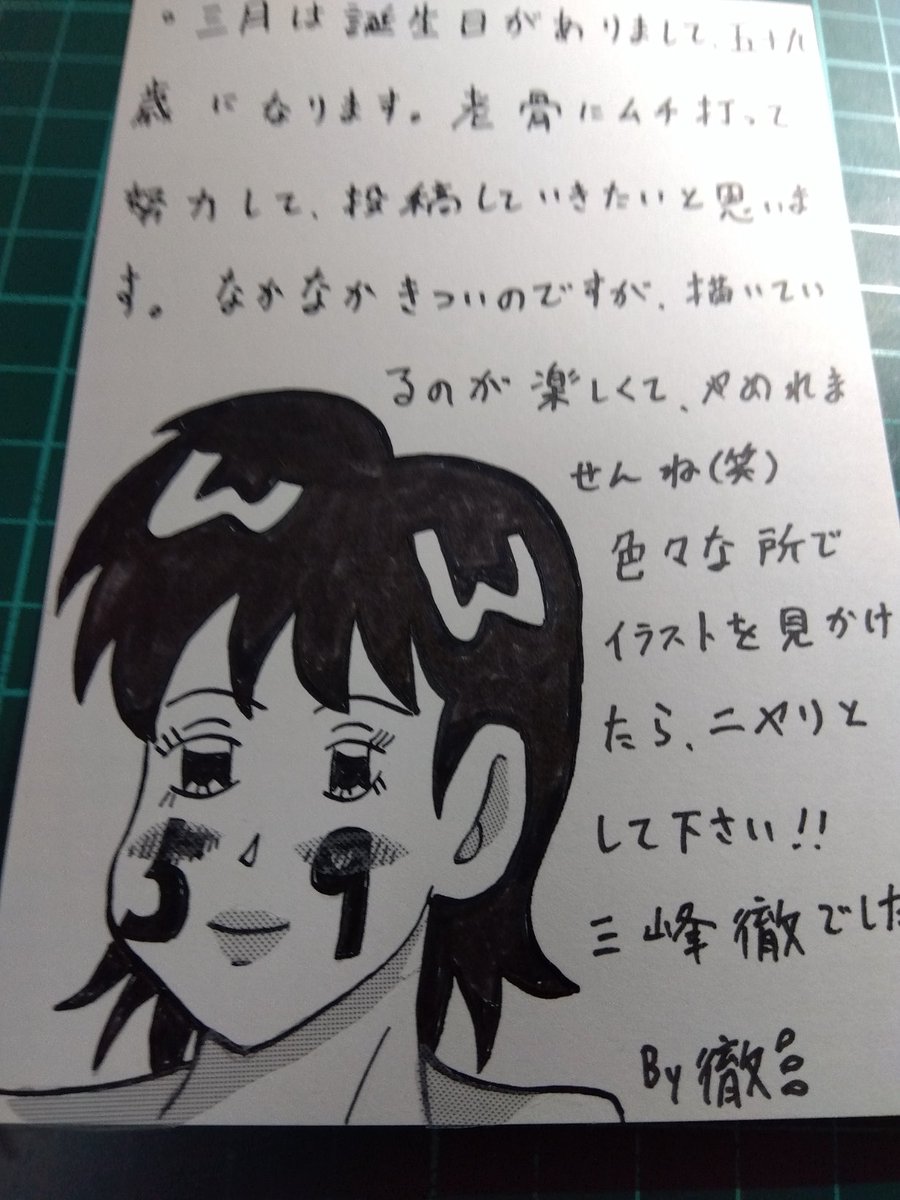 。三月は誕生日がありまして、五十九
歳になります。老骨にムチ打って
努力して、投稿していきたいと思いま
す。なかなかきついのですが、描いてい
るのが楽しくて、やめれま
せんね(笑)
色々な所で
イラストを見かけ
たら、ニヤリと
して下さい!!
三峰徹でした
By 徹
W W
5 9